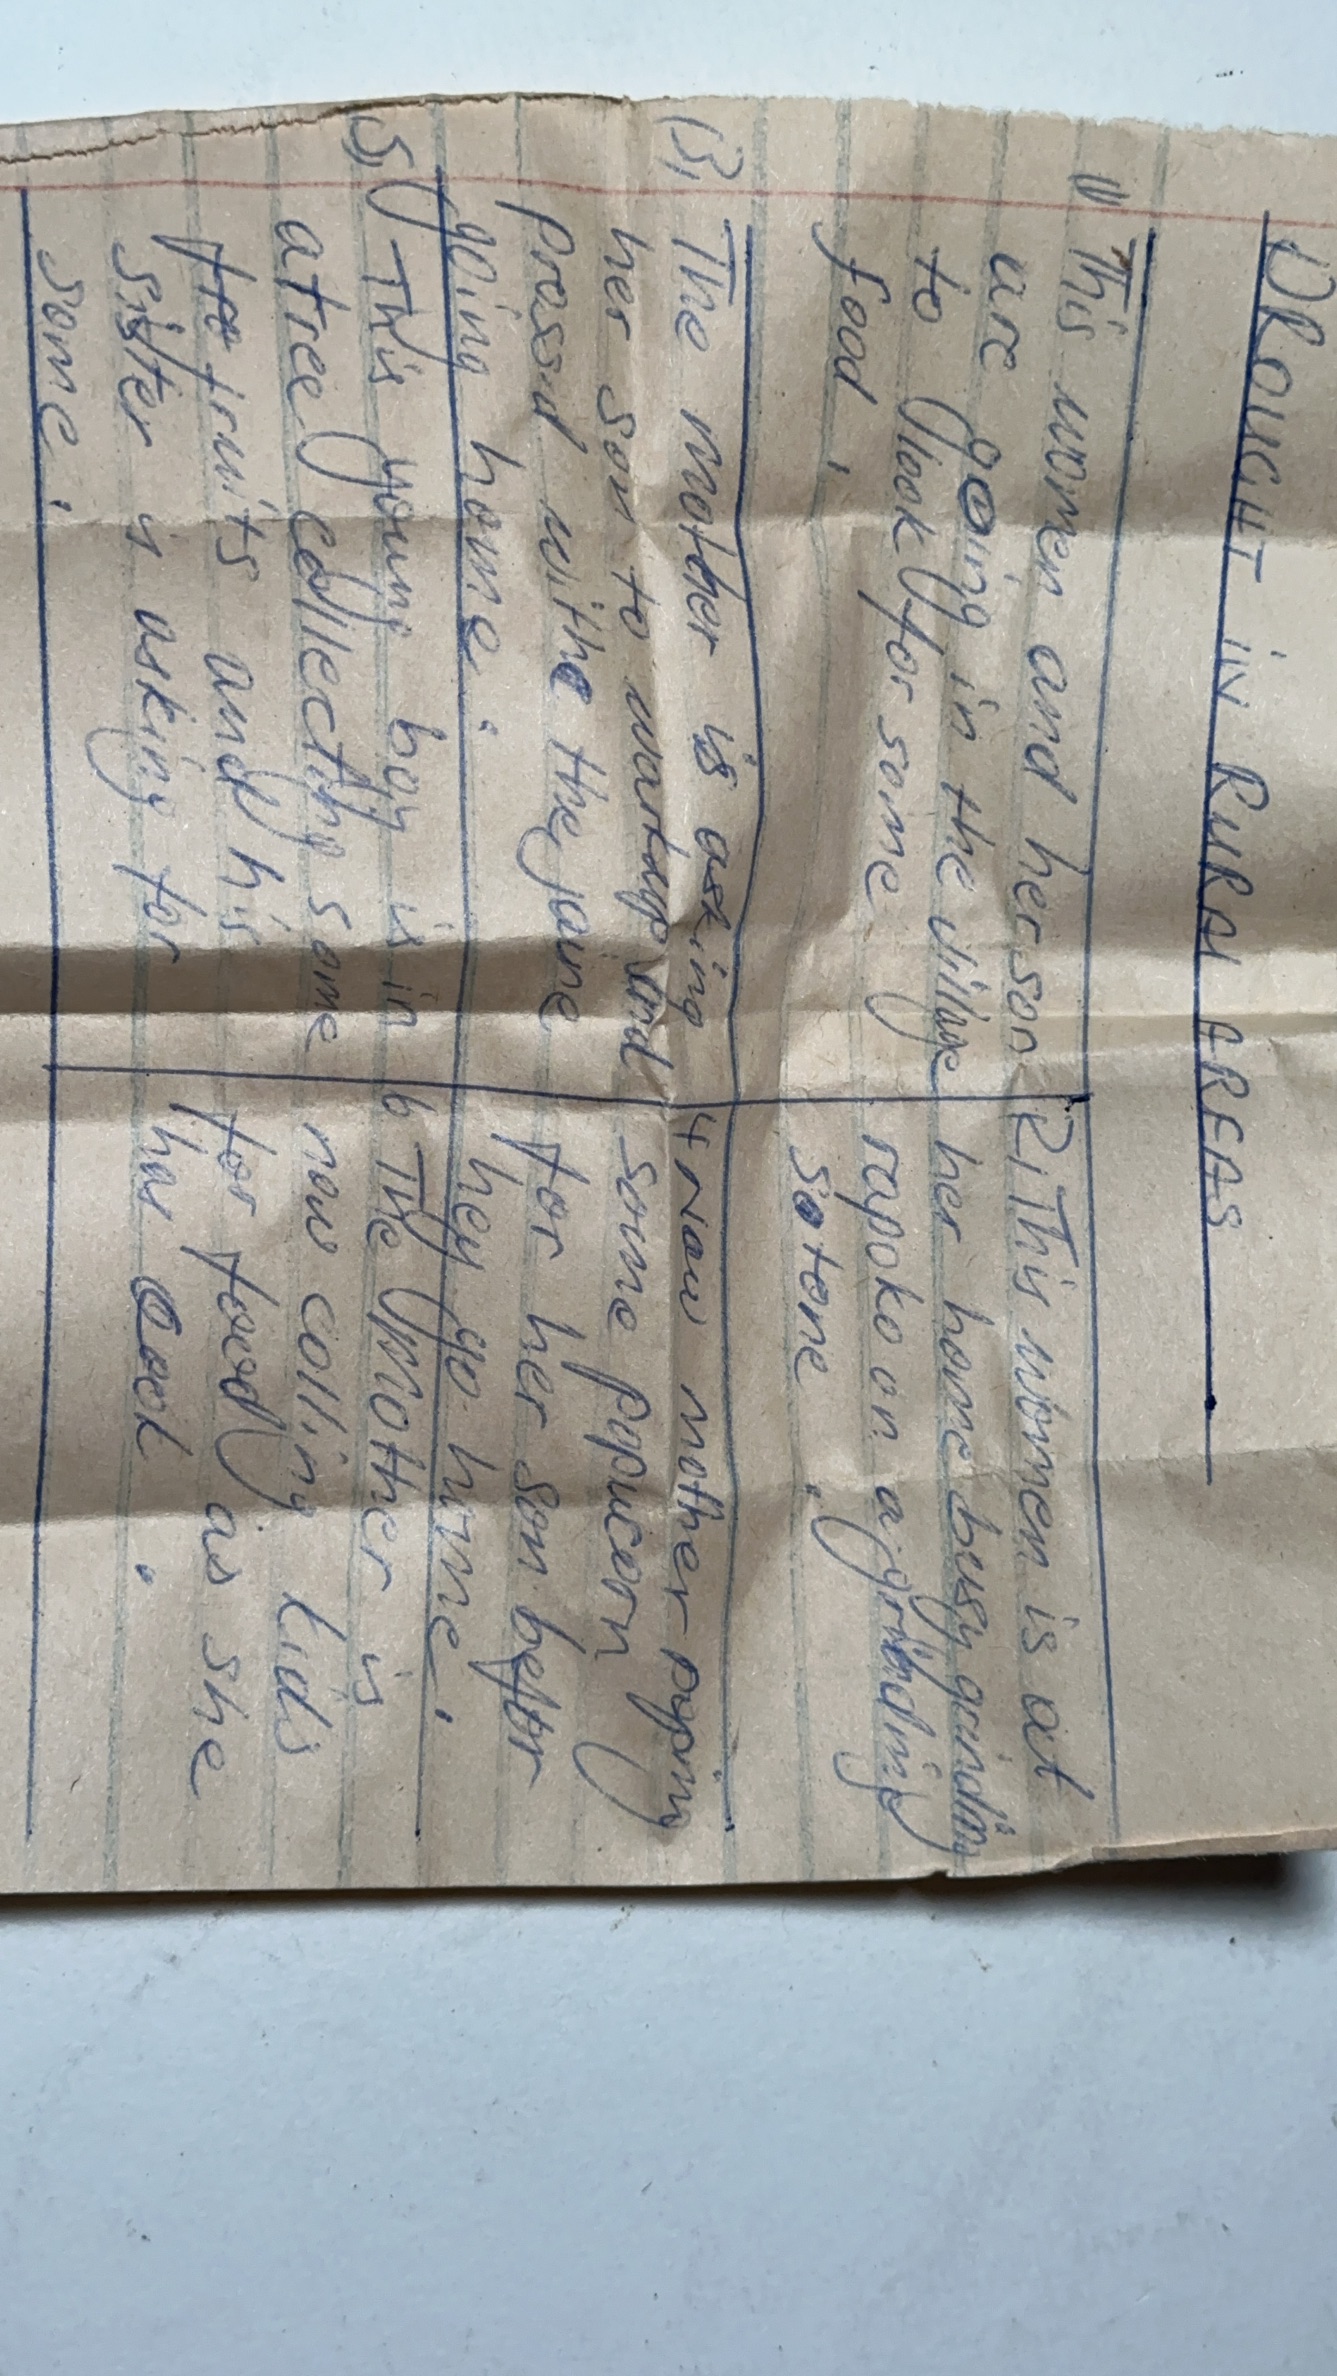 DROUGHT IN RURAL AREAS
1) This women and her son
are going in the village
to look for some
food.
2) This women is at
her home busy grinding
rapoko on a grinding
sotone.
(3) The mother is asking
her son to wartup and
prosid withe the jane
going home.
4 Now mother pying
some popucorn
for her son befor
hey go home.
5) This young boy is in
atree collecting some
fruits and his
sister is asking for
some.
6 The mother is
now colling kids
for food as she
has